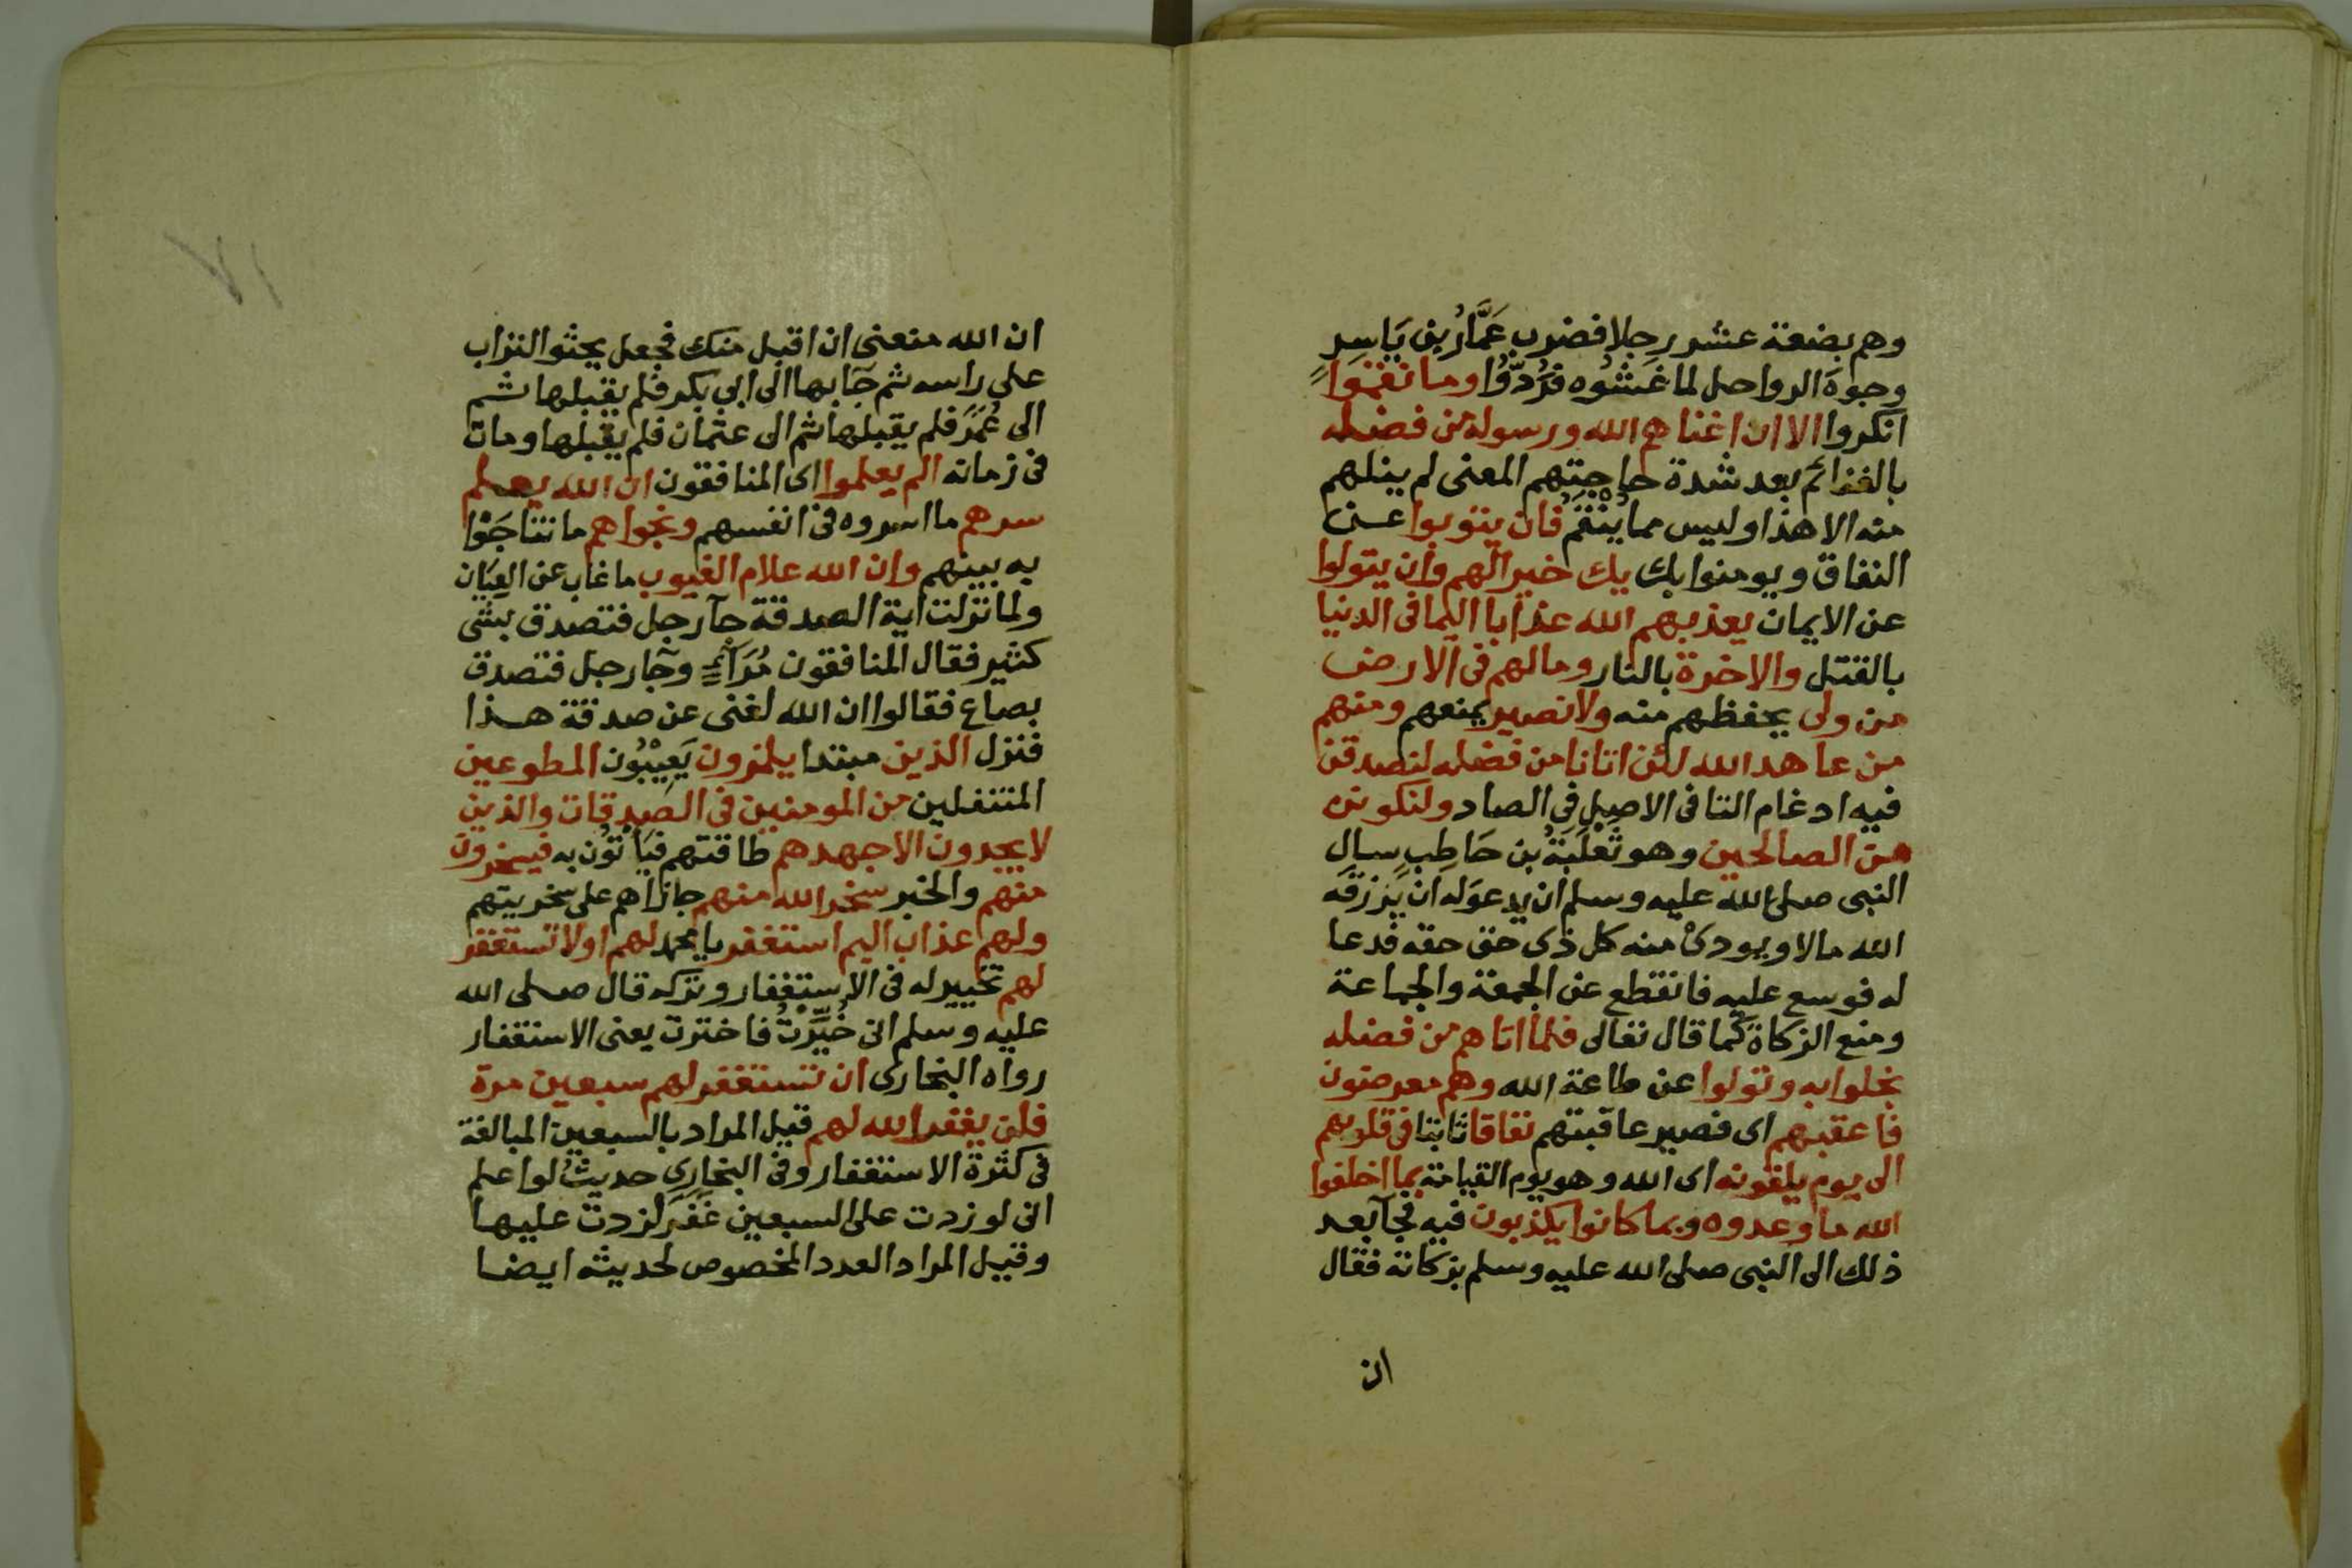 وهم بضعة عشر رجلا فضرب عَمَّارُ بن يَاسِرٍ
وجوهَ الرواحل لما غَشُوه فَرُدّوُا وما نقموا
انكروا الا ان اغناهم الله ورسوله من فضله
بالغنائم بعد شدة حاجتهم المعنى لم ينلهم
منه الا هذا وليس مما يُنْقَمُ فان يتوبوا عن
النفاق ويومنوا بك يك خيرا لهم وان يتولوا
عن الايمان يعذبهم الله عذابا اليما فى الدنيا
بالقتل والاخرة بالنار وما لهم فى الارض
من ولى يحفظهم منه ولا نصير يمنعهم ومنهم
من عاهد الله لئن اتانا من فضله لنصدقن
فيه ادغام التا فى الاصل في الصاد ولنكونن
من الصالحين وهو ثَعْلَبَةُ بن حَاطِبٍ سال
النبى صلى الله عليه وسلم ان يدعوَ له ان يَرْزقَه
الله مالا ويودىْ منه كل ذى حق حقه فدعا
له فوسع عليه فانقطع عن الجمعة والجماعة
ومنع الزكاة كما قال تعالى فلما اتاهم من فضله
بخلوا به وتولوا عن طاعة الله وهم معرضون
فاعقبهم اى فصير عاقبتهم نفاقا ثابتا فى قلوبهم
الى يوم يلقونه اى الله وهو يوم القيامة بما اخلفوا
الله ما وعدوه وبما كانوا يكذبون فيه فجآ بعد
ذلك الى النبى صلى الله عليه وسلم بزكاته فقال
ان
ان الله منعنى ان اقبل منك فجعل يحثوا التراب
على راسه ثم جآ بها الى ابى بكر فلم يقبلها ثم
الى عُمَرَ فلم يقبلها ثم الى عثمان فلم يقبلها ومات
فى زمانه الم يعلموا اى المنافقون ان الله يعلم
سرهم ما اسروه فى انفسهم ونجواهم ما تناجَوْا
به بينهم وان الله علام الغيوب ما غاب عن العِيَان
ولما نزلت اية الصدقة جآ رجل فتصدق بشى
كثير فقال المنافقون مُرَآءٍ وجآ رجل فتصدق
بصاع فقالوا ان الله لغنى عن صدقة هذا
فنزل الذين مبتدا يلمزون يَعِيْبُون المطوعين
المتنفلين من المومنين فى الصدقات والذين
لا يجدون الا جهدهم طاقتهم فيَأْتُون به فيسخرون
منهم والخبر سخر الله منهم جازاهم على سخريتهم
ولهم عذاب اليم استغفر يا محمد لهم او لا تستغفر
لهم تخيير له فى الاستغفار وتركه قال صلى الله
عليه وسلم انى خُيِّرْتُ فاخترت يعنى الاستغفار
رواه البخارى ان تستغفر لهم سبعين مرة
فلن يغفر الله لهم قيل المراد بالسبعين المبالغة
فى كثرة الاستغفار وفى البخارى حديثُ لو اعلم
انى لو زدت على السبعين غَفَرَ لزدت عليها
وقيل المراد العدد المخصوص لحديثه ايضا